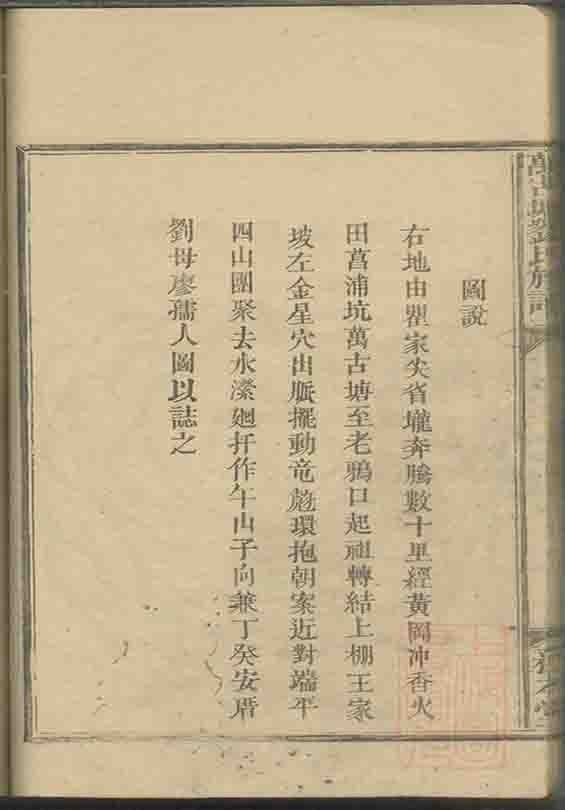 圖說
右地由瞿家尖省壠奔騰數十里經黃岡冲香火
田菖浦坑萬古塘至老鴉口起祖轉結上棚王家
坡左金星穴出脈擺動竜彪環抱朝案近對端平
四山團聚去水濚廻扦作午山子向兼丁癸安厝
劉母廖孺人圖以誌之